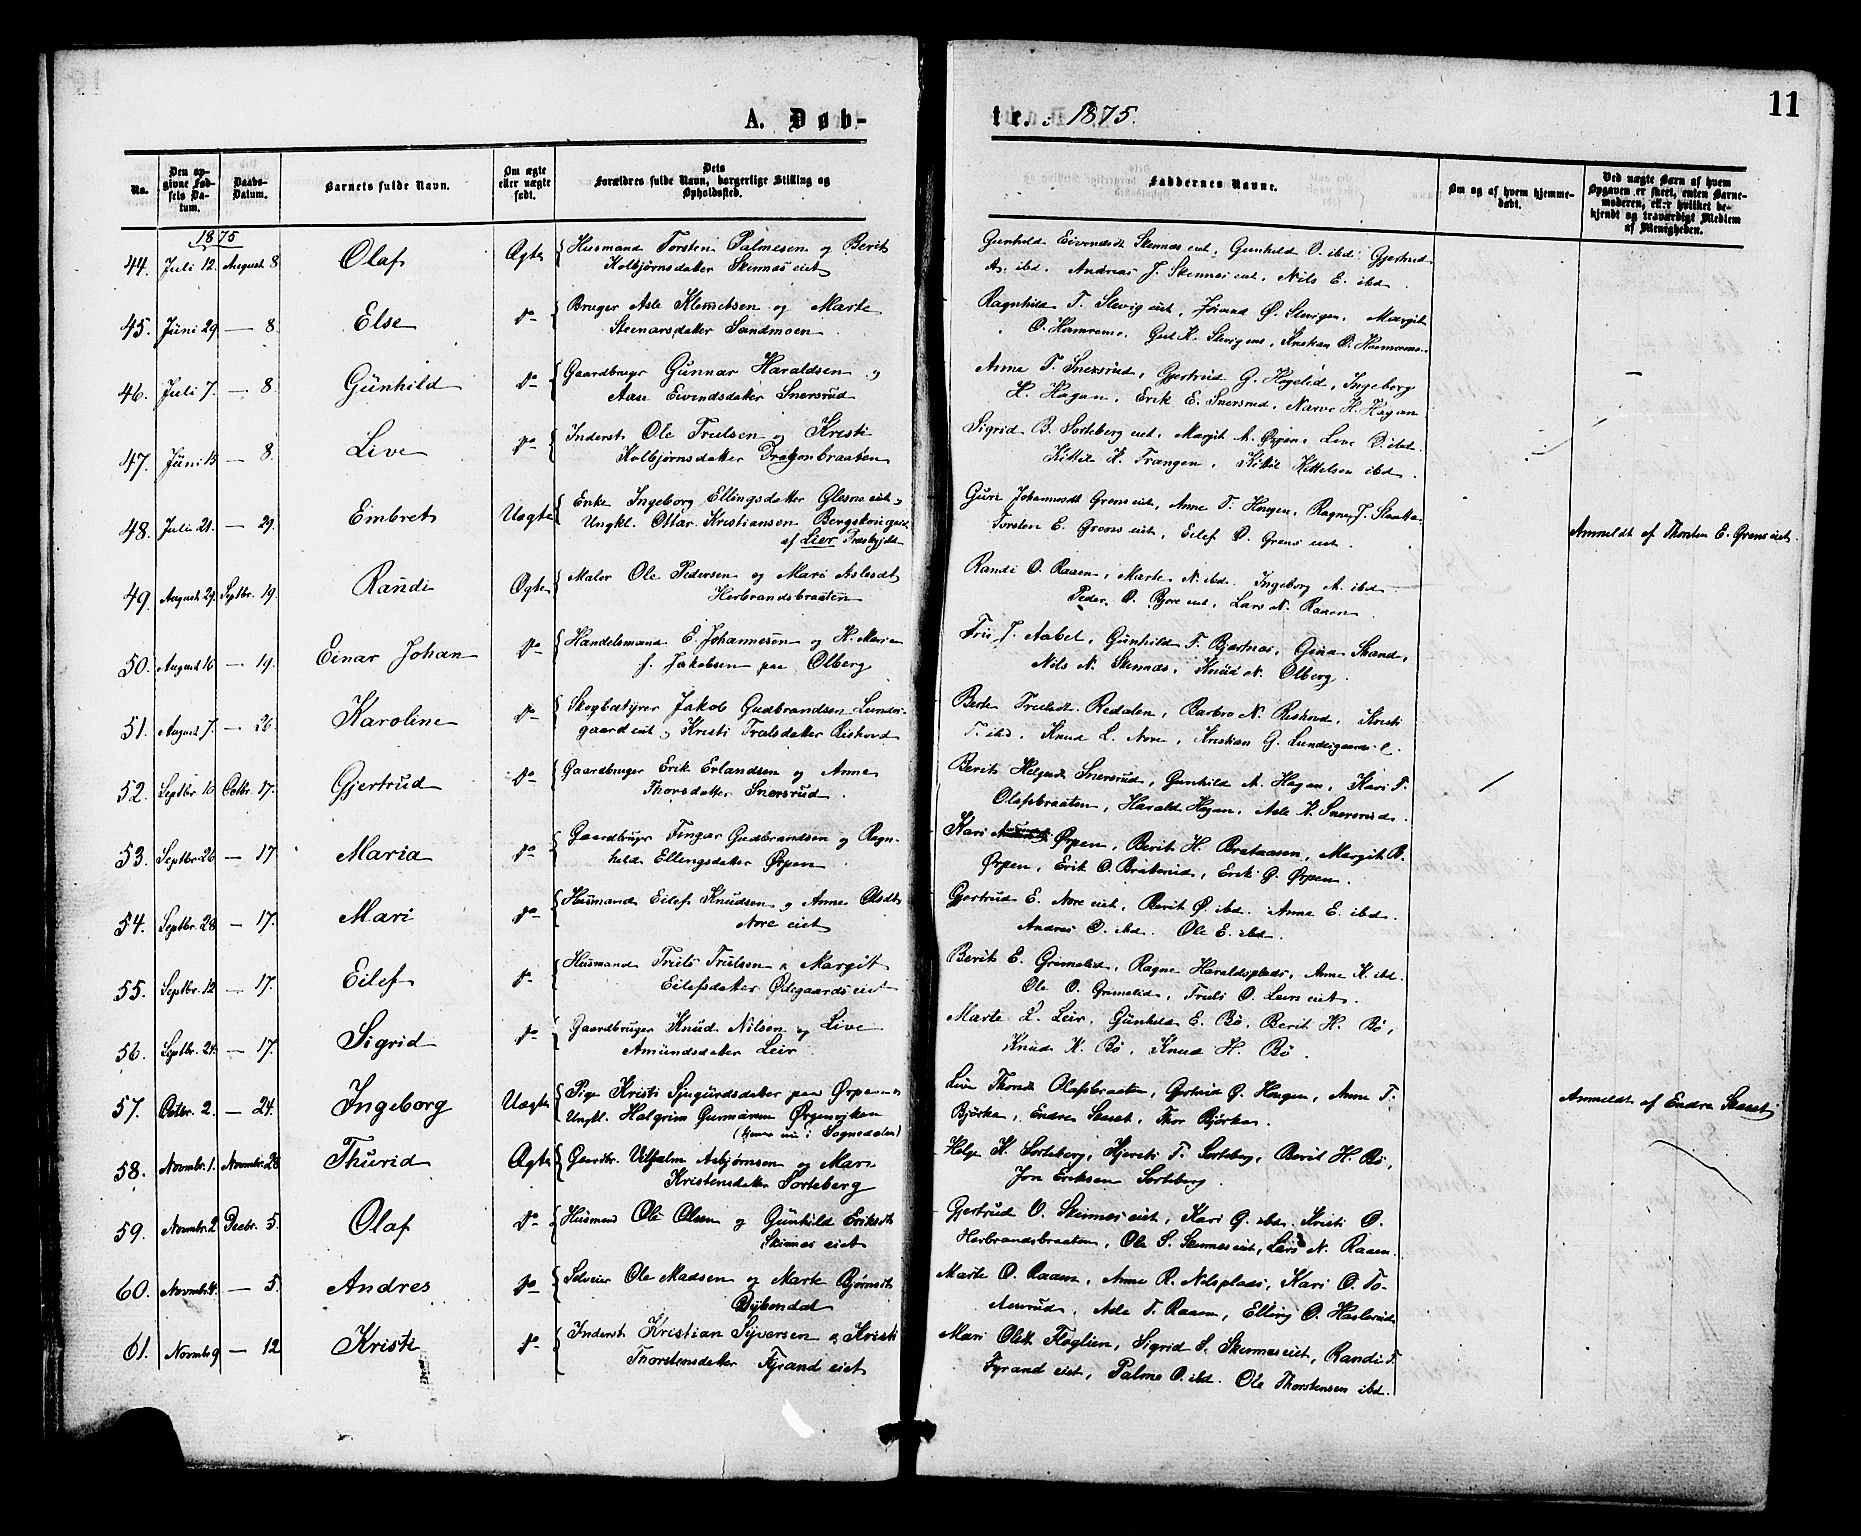 A. Døb-
tre. 1875.
11
No.
Den opgivne Fødsels Datum.
Daabs-Datum.
Barnets fulde Navn.
Om ægte eller uægte født.
Dets Forældres fulde Navn, borgerlige Stilling og Opholdssted.
Faddernes Navne.
Om og af hvem hjemmedøbt.
Ved uægte Barn af hvem Opgaven er skeet, enten Barnemoderen, eller hvilket bekjendt og troværdigt Medlem af Menigheden.
1875
44. Juli 12. August 8 Olaf Ægte Husmand Torsten Palmesen og Berit
Kolbjørnsdatter Skinnes eiet
Gunhild Eivendsdt Skinnes eiet, Gunhild O. ibd. Gjertrud
A. ibd. Andreas J. Skinnes eiet, Nils E. ibd.
45. Juni 29 — 8. Else do Bruger Asle Klemetsen og Marte
Steenarsdatter Sandmoen
Ragnhild T. Slevig eiet, Jørand Ø. Slevigen, Margit
O. Hamremo, Gul K. Slevigens, Kristian O. Hamremo.
46. Juli 7. — 8. Gunhild do Gaardbruger Gunnar Haraldsen og
Aase Eivendsdatter Snersrud
Anne T. Snersrud, Gjertrud G. Høgelid, Ingeborg
H. Hagan, Erik E. Snersrud, Narve H. Hagan
47. Juni 15 — 8. Live do Inderst Ole Trulsen og Kristi
Kolbjørnsdatter Dragonbraaten
Sigrid B. Sorteberg eiet, Margit A. Ørpen, Live O. ibd.
Kittil K. Frangen, Kittil Kittelsen ibd.
48. Juli 21. — 29. Embret Uægte Enke Ingeborg Ellingsdatter Olesme eiet og
Ungkl. Ottar Kristiansen
af Lier Præstgjeld
Guri Johannesdt Grøns eiet, Anne T. Haugen, Ragne J. Slaatta
Torsten E. Grøns eiet, Eilef O. Grøns eiet.
Anmeldt af Thorsten E. Grøns eiet.
49. August 29. Septbr. 19. Randi Ægte Maler Ole Pedersen og Mari Aslesdt
Herbrandsbraaten
Randi O. Raaen, Marte N. ibd. Ingeborg A. ibd
Peder O. Bjøre eiet, Lars N. Raaen
50. August 16 — 19. Einar Johan do Handelsmand E. Johannesen og K. Marie
f. Jakobsen paa Olberg
Fru J. Aabel, Gunhild T. Bjertnes, Gina Skand,
Nils N. Skinnes, Knud N. Olberg.
51. August 7. — 26. Karoline do Skogbestyrer Jakob Gudbrandsen Lundes-
gaard eiet og Kristi Trulsdatter Rishovd
Berte Trulsdt. Redalen, Barbro N. Rishovd, Kristi
T. ibd. Knud L. Nore, Kristian G. Lundesgaards e.
52. Septbr 10 Octbr. 17. Gjertrud do Gaardbruger Erik Erlandsen og Anne
Thorsdatter Snersrud.
Berit Helgesdt Snersrud, Gunhild A. Hagan, Kari T.
Olafsbraaten, Harald Hagan, Asle K. Snersrud.
53. Septbr. 26 — 17 Maria do Gaardbruger Fingar Gudbrandsen og Ragn-
hild Ellingsdatter Ørpen
Kari Ørpen, Berit H. Brataasen, Margit B.
Ørpen, Erik O. Braterud, Erik G. Ørpen.
54. Septbr. 28 — 17. Mari do Husmand Eilef Knudsen og Anne Olsdt
Nore eiet
Gjertrud E. Nore eiet, Berit Ø. ibd. Anne E. ibd.
Andres O. ibd. Ole E. ibd.
55. Septbr. 12 — 17. Eilef do Husmand Truls Trulsen og Margit
Eilefsdatter Ødegaards eiet
Berit E. Grimelid, Ragne Haraldsplads, Anne K. ibd.
Ole O. Grimelid, Truls O. Leirs eiet.
56. Septbr. 24. — 17. Sigrid do Gaardbruger Knud Nilsen og Live
Amundsdatter Leir
Marte L. Leir, Gunhild E. Bø, Berit H. Bø,
Knud K. Bø, Knud H. Bø.
57. Octbr. 2. — 24. Ingeborg Uægte Pige Kristi Sjugurdsdatter paa Ørpen og
Ungkl. Halgrim Gunnarsen Ørgenvjken
(tjener nu i Sognedalen)
Live Thorsdt Olafsbraaten, Gjertrud G. Haugen, Anne T.
Bjørke, Endre Saset, Thor Bjørke.
Anmeldt af Endre Saset
58. Novmbr. 1. Novmbr. 28 Thurid Ægte Gaardbr. Vilhelm Asbjørnsen og Mari
Kristensdatter Sorteberg
Helge K. Sorteberg, Kjersti T. Sorteberg, Berit H. Bø,
Jon Eriksen Sorteberg.
59. Novmbr. 2 Decbr. 5. Olaf do Husmand Ole Olsen og Gunhild Eriksdt
Skinnes eiet
Gjertrud O. Skinnes eiet, Kari G. ibd. Kristi O.
Herbrandsbraaten, Ole S. Skinnes eiet, Lars N. Raaen.
60. Novmbr. 4. — 5. Andres do Selveier Ole Madsen og Marte Bjørnsdt
Marte O. Raaen, Anne R. Nilsplads, Kari O. To-
Asle T. Raaen, Elling O. Haslerud
61. Novmbr 9 — 12 Kristi do Inderst Kristian Syversen og Kristi
Thorstensdatter Fyrand eiet
Mari Olsdt. Flaglien, Sigrid S. Skinnes eiet, Randi T.
Fyrand eiet, Palme O. ibd. Ole Thorstensen ibd.